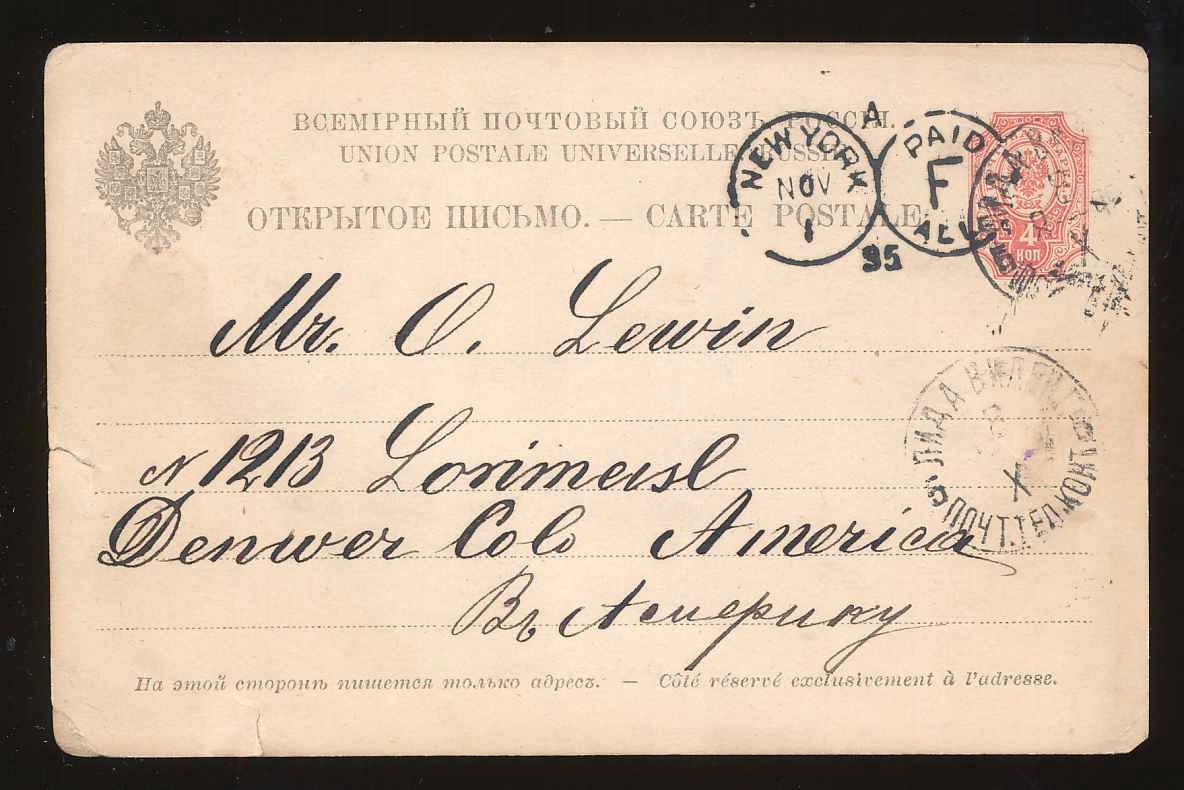 ВСЕМІРНЫЙ ПОЧТОВЫЙ СОЮЗЪ. РОССІЯ.
UNION POSTALE UNIVERSELLE. RUSSIE.
ОТКРЫТОЕ ПИСЬМО. — CARTE POSTALE.
A
NEW YORK
NOV
1
95
PAID
F
ALL
4
КОП
Mr. O. Lewin
ЛИДА ВИЛЕН. Г.
X
ПОЧТ.ТЕЛ.КОНТ.
N 1213 Lorimerst
Denwer Colo America
Въ Америку
На этой сторонѣ пишется только адресъ. — Côté réservé exclusivement à l'adresse.